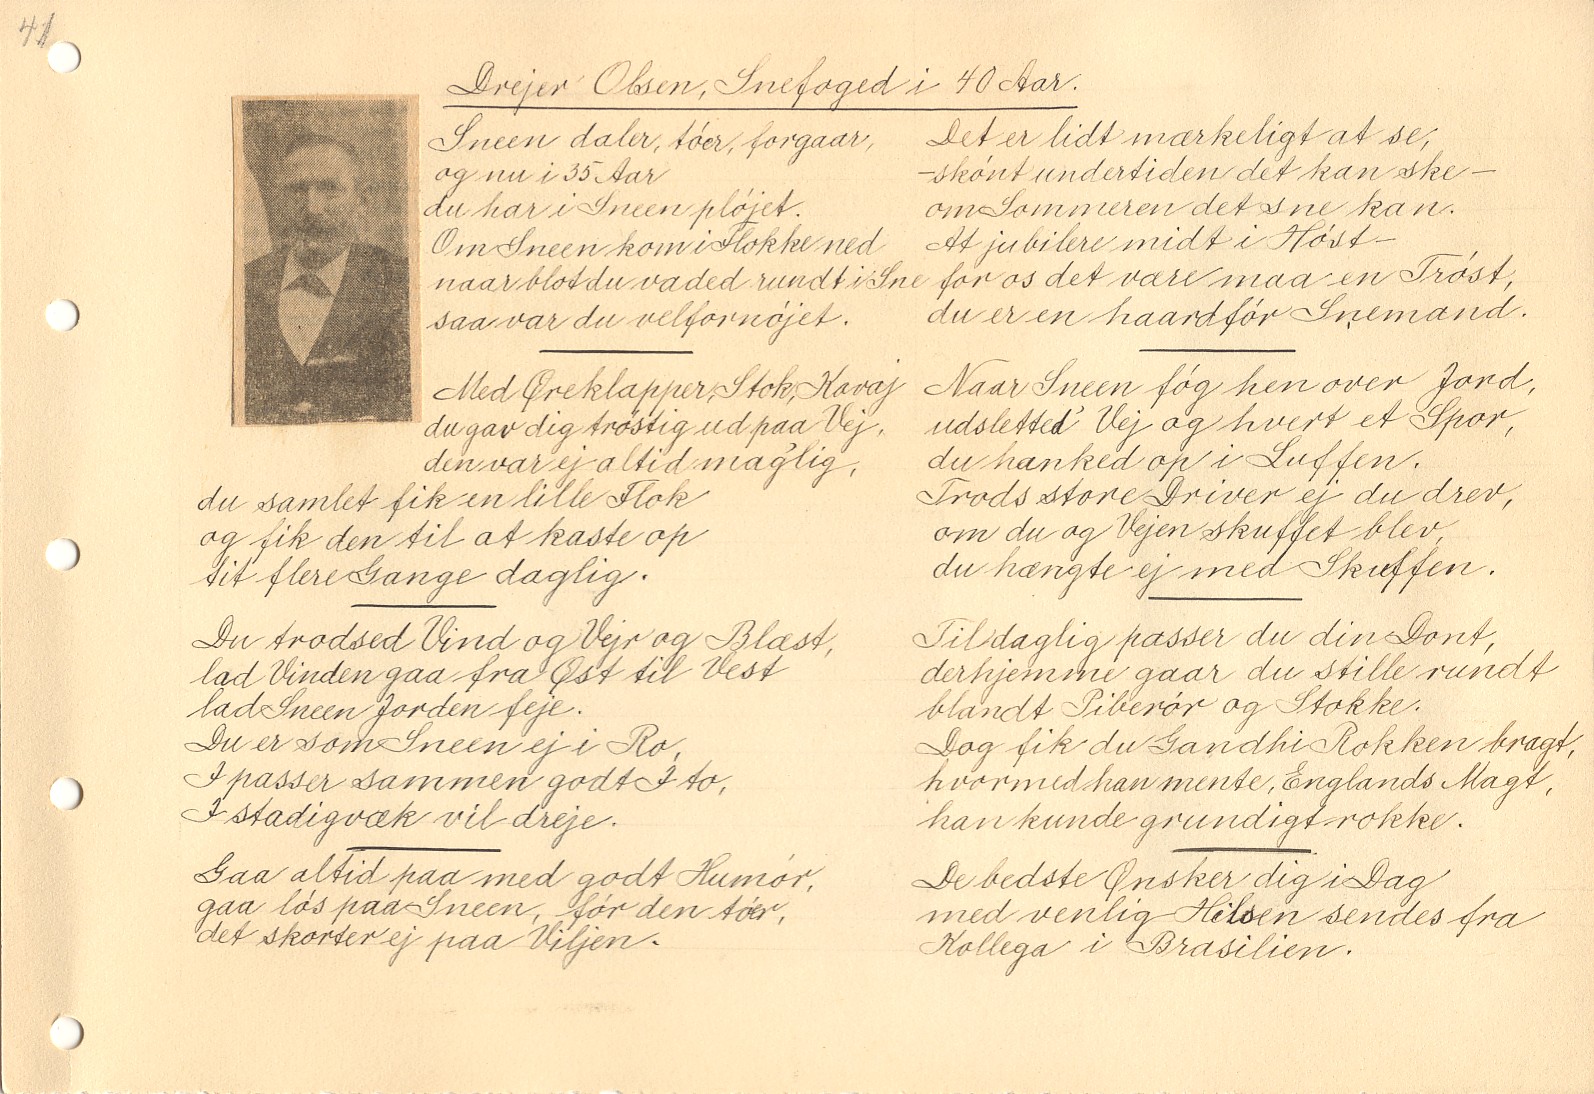 41
Drejer Olsen, Snefoged i 40 Aar.
Sneen daler, tøer, forgaar,
og nu i 35 Aar
du har i Sneen pløjet.
Om Sneen kom i Flokke ned
naar blot du vaded rundt i Sne
saa var du velfornøjet.
Med Øreklapper, Stok, Kavaj
du gav dig trøstig ud paa Vej,
den var ej altid mag'lig,
du samlet fik en lille Flok
og fik den til at kaste op
tit flere Gange daglig.
Du trodsed Vind og Vejr og Blæst,
lad Vinden gaa fra Øst til Vest
lad Sneen Jorden feje.
Du er som Sneen ej i Ro,
I passer sammen godt I to,
I stadigvæk vil dreje.
Gaa altid paa med godt Humør,
gaa løs paa Sneen, før den tøer,
det skorter ej paa Viljen.
Det er lidt mærkeligt at se,
- skønt undertiden det kan ske -
om Sommeren det sne kan.
At jubilere midt i Høst -
for os det være maa en Trøst,
du er en haardfør Snemand.
Naar Sneen føg hen over Jord,
udsletted' Vej og hvert et Spor,
du hanked op i Luffen.
Trods store Driver ej du drev,
om du og Vejen skuffet blev,
du hængte ej med Skuffen.
Til daglig passer du din Dont,
derhjemme gaar du stille rundt
blandt Piberør og Stokke.
Dog fik du Gandhi Rokken bragt,
hvormed han mente, Englands Magt,
han kunde grundigt rokke.
De bedste Ønsker dig i Dag
med venlig Hilsen sendes fra
Kollega i Brasilien.